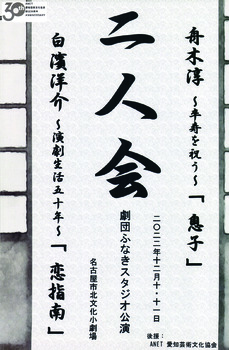 30th
二人会
舟木淳 ～半寿を祝う～ 「息子」
白濱洋介 ～演劇生活五十年～ 「恋指南」
劇団ふなきスタジオ公演
二〇二二年十二月十・十一日
名古屋市北文化小劇場
後援：
ANET 愛知芸術文化協会